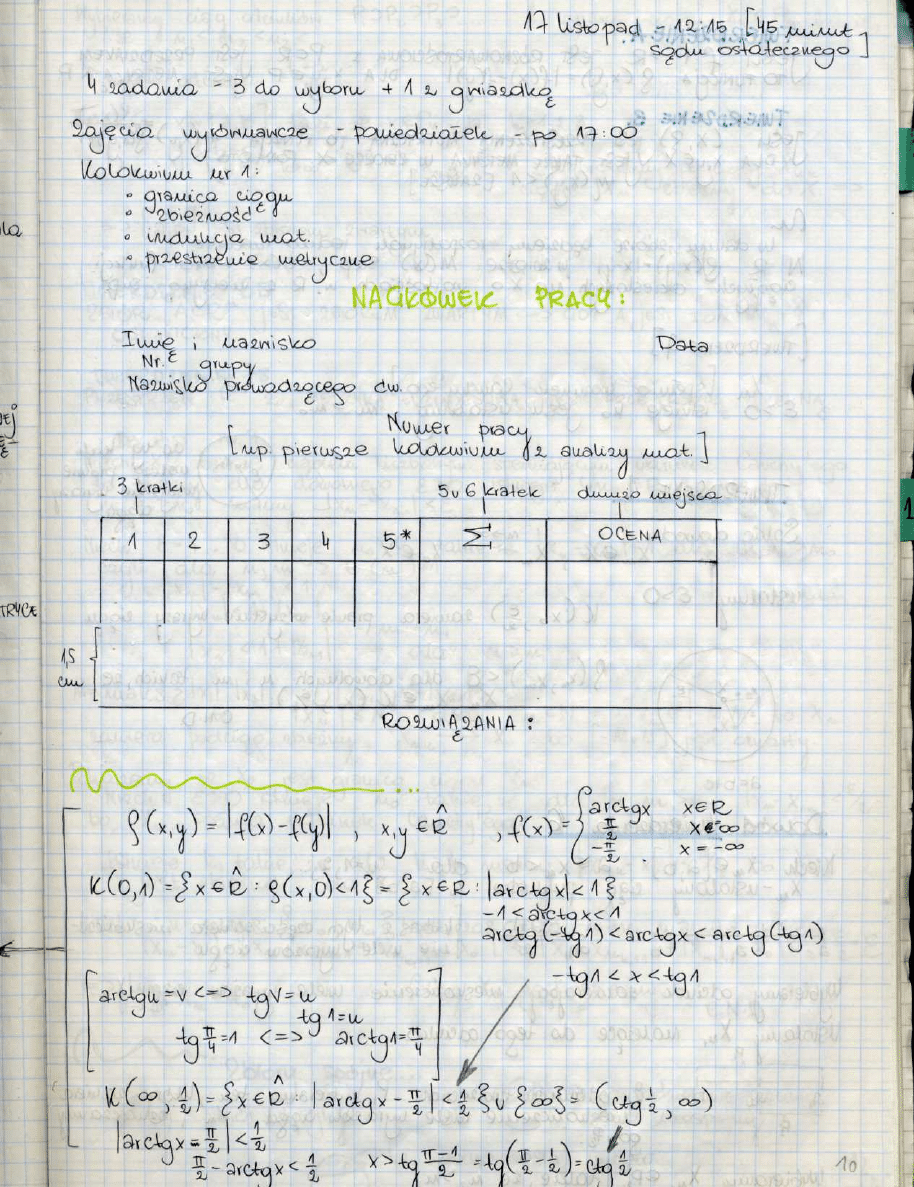 17 listopad - 12:15 [45 minut
sądu ostatecznego]
4 zadania - 3 do wyboru + 1 z gwiazdką
Zajęcia wyrównawcze - poniedziałek - po 17:00
Kolokwium nr 1:
• granica ciągu
• zbieżność
• indukcja mat.
• przestrzenie metryczne
NAGŁÓWEK PRACY:
Imię i nazwisko Data
Nr. grupy
Nazwisko prowadzącego ćw.
Numer pracy
[np. pierwsze kolokwium z analizy mat.]
3 kratki 5v6 kratek dużo miejsca
1 2 3 4 5* Σ OCENA
1,5
cm
ROZWIĄZANIA:
ρ(x,y) = |f(x)-f(y)| , x,y ∈ R̂ , f(x) = { arctgx x∈R
π/2 x=∞
-π/2 . x=-∞
K(0,1) = {x∈R̂ : ρ(x,0)<1} = {x∈R : |arctgx|<1}
-1<arctgx<1
arctg(-tg1)<arctgx<arctg(tg1)
-tg1 < x < tg1
[arctgu=v <=> tgv=u
tg1=u
tg π/4=1 <=> arctg1=π/4]
K(∞, 1/2) = {x∈R̂ : |arctgx - π/2| < 1/2} ∪ {∞} = (ctg 1/2, ∞)
|arctgx - π/2| < 1/2
π/2 - arctgx < 1/2 x > tg (π-1)/2 = tg(π/2 - 1/2) = ctg 1/2
10